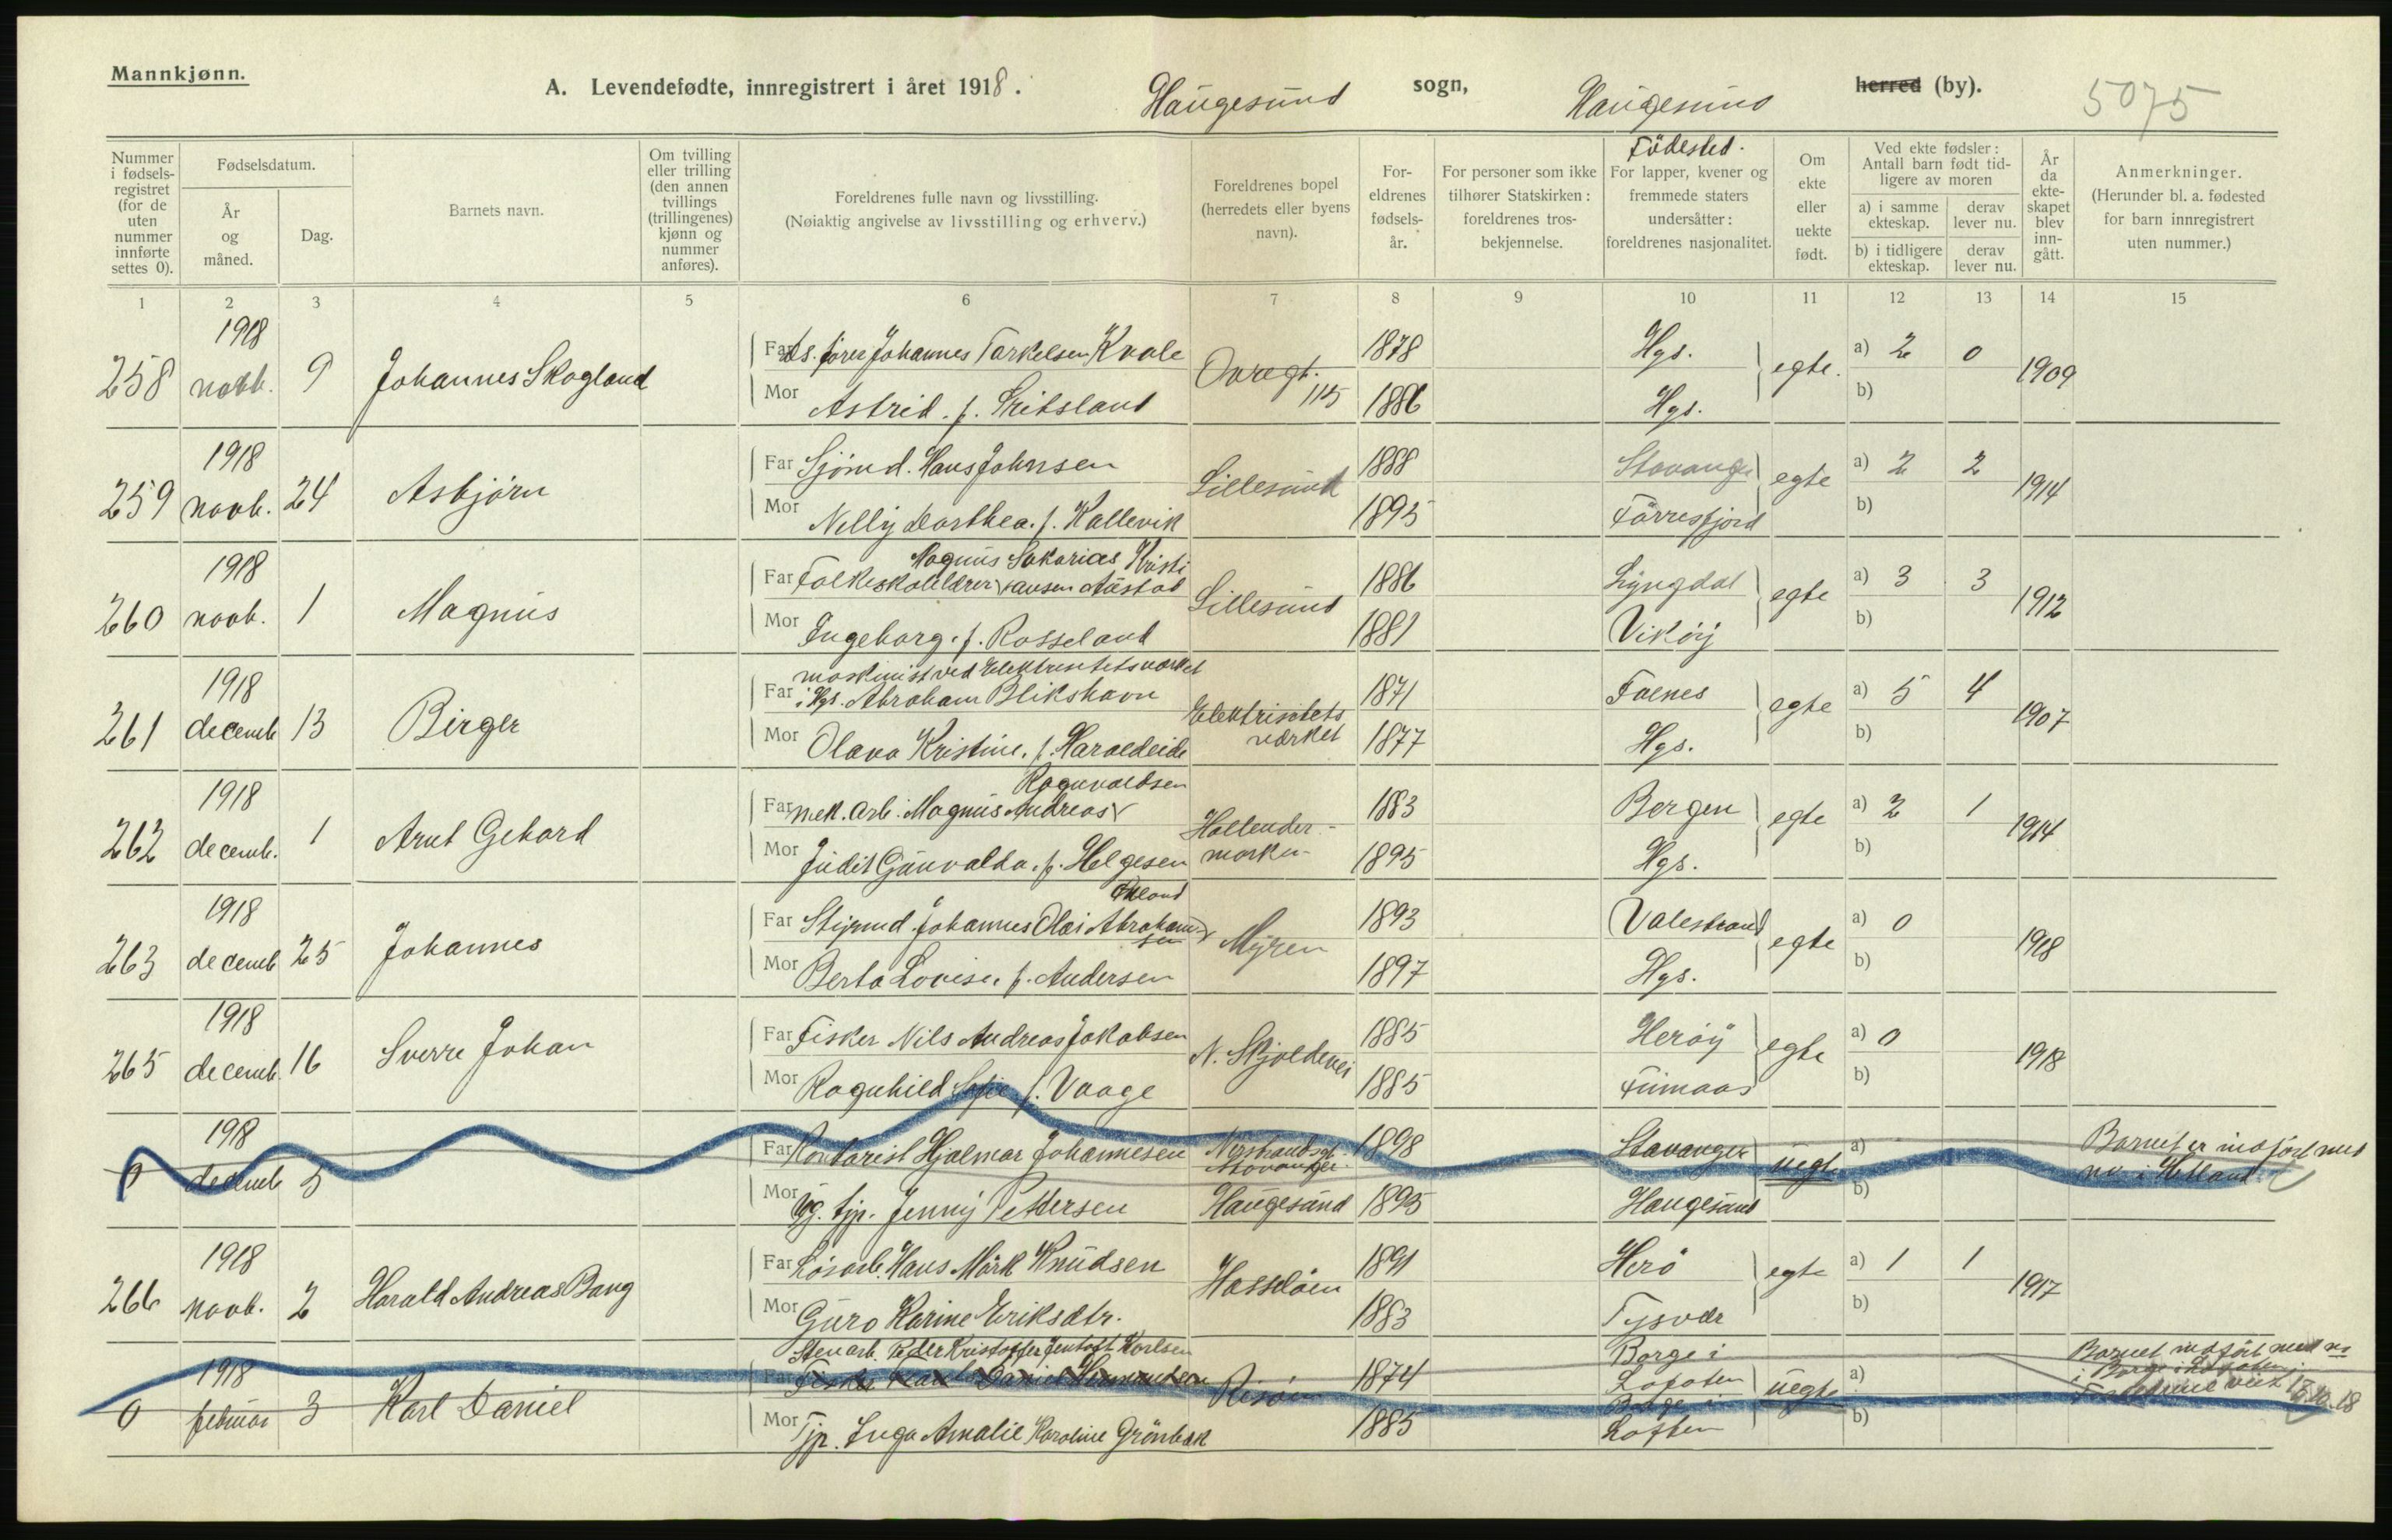 Mannkjønn.
A. Levendefødte, innregistrert i året 1918. Haugesund sogn, Haugesund herred (by). 5075
Nummer i fødselsregistret (for de uten nummer innførte settes 0).
Fødselsdatum.
År og måned.
Dag.
Barnets navn.
Om tvilling eller trilling (den annen tvillings (trillingenes) kjønn og nummer anføres).
Foreldrenes fulle navn og livsstilling.
(Nøiaktig angivelse av livsstilling og erhverv.)
Foreldrenes bopel (herredets eller byens navn).
Foreldrenes fødselsår.
For personer som ikke tilhører Statskirken: foreldrenes trosbekjennelse.
Födested.
For lapper, kvener og fremmede staters undersåtter: foreldrenes nasjonalitet.
Om ekte eller uekte født.
Ved ekte fødsler: Antall barn født tidligere av moren
a) i samme ekteskap.
derav lever nu.
b) i tidligere ekteskap.
derav lever nu.
År da ekteskapet blev inngått.
Anmerkninger.
(Herunder bl. a. fødested for barn innregistrert uten nummer.)
1 2 3 4 5 6 7 8 9 10 11 12 13 14 15
1918
258 novb. 9 Johannes Skogland
Far Ds. fører Johannes Torkelsen Kvale 1878 Hgs. a) 2 0
Ovregt. 115 egte. 1909
Mor Astrid. f. 1886 Hgs. b)
1918
259 novb. 24 Asbjørn
Far Sjömd. Hans Johnsen 1888 Stavanger a) 2 2
Lillesund egte 1914
Mor Nelly Dorthea. f. Kallevik 1895 Förresfjord b)
1918
260 novb. 1 Magnus
Magnus Sakarias Kristi
Far Folkeskolelærer ansen Austad 1886 Lyngdal a) 3 3
Lillesund egte 1912
Mor Ingeborg. f. Rosseland 1881 Viköy b)
1918
261 decemb 13 Birger
maskinist ved Elektrisitetsværket
Far i Hgs. Abraham Blikshavn 1871 Falnes a) 5 4
Elektrisitets værket egte 1907
Mor Olava Kristine. f. Haraldeide 1877 Hgs. b)
1918
262 decemb. 1 Arnt Gehard
Ragnvaldsen
Far mek. arb. Magnus Andreas 1883 Bergen a) 2 1
Hollender- marken- egte 1914
Mor Judit Gunvalda. f. Helgesen 1895 Hgs. b)
1918
263 decemb 25 Johannes
Far Styrmd. Johannes Olai Abrahamsen 1893 Valestrand a) 0
Myren egte 1918
Mor Berta Lovise. f. Andersen 1897 Hgs. b)
1918
265 decemb. 16 Sverre Johan
Far Fisker Nils Andreas Jakobsen 1885 Heröy a) 0
N. Skjoldevei egte 1918
Mor Ragnhild Sofie f. Vaage 1885 b)
1918
0 decemb 5
Far Kontorist Hjalmar Johannesen Stavanger. 1898 Stavanger a) Barnet er indført med
uegte no i Hetland
Mor Ug. tjp. Jenny Pettersen Haugesund 1895 Haugesund b)
1918
266 novb. 2 Harald Andreas Bang
Far Løsarb. Hans Mörk Knudsen 1891 Herö a) 1 1
Hasseløen egte 1917
Mor Guro Karine Eriksdtr. 1883 Tysvær b)
1918
0 februar 3 Karl Daniel
Stenarb. Peder Kristoffer Jentoft Karlsen Borge i Barnet indført med no
Far 1874 Lofoten a) i Borge i Lofoten
Risöen uegte 18
Mor Tjp. Inga Amalie Karoline Grönbæk 1885 Borge i Lofoten b)